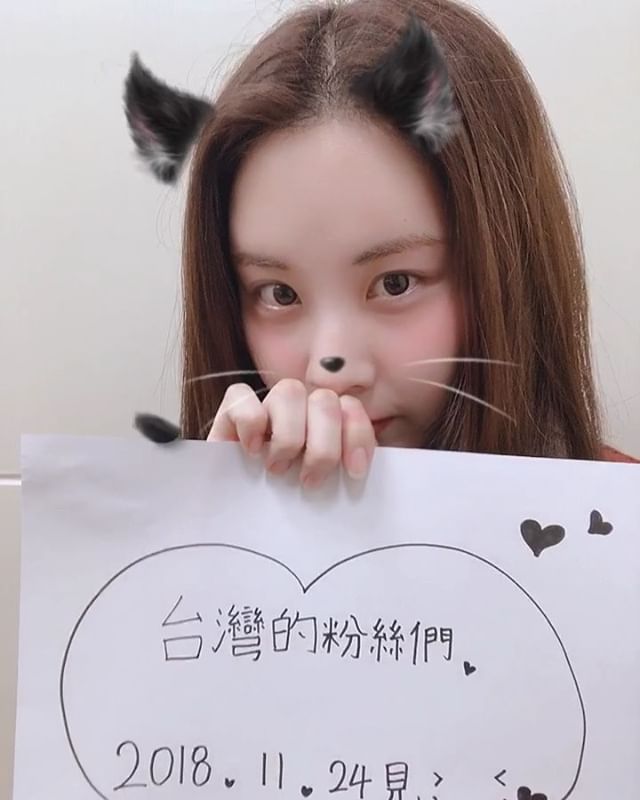 台灣的粉絲們
2018.11.24見